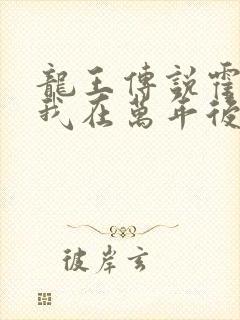 龍王傳說霍
我在萬年後
彼岸玄